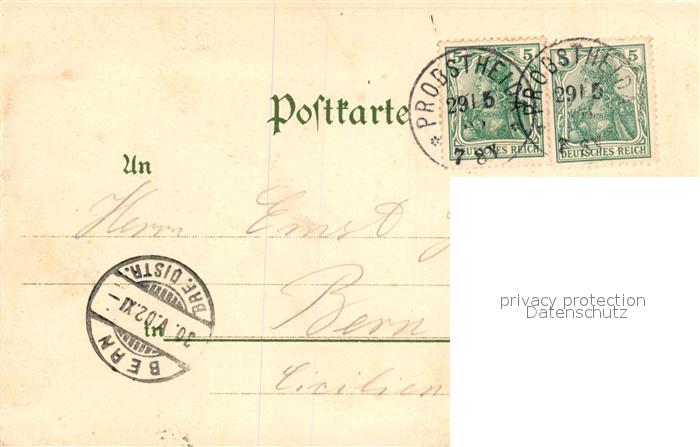 5 5 5
PROBSTHEIDA PROBSTHEIDA
29 5 29 5
7 8V
DEUTSCHES REICH DEUTSCHES REICH
Postkarte
An
Herrn Ernst
BRF. DISTR.
30.V.02.XI–
BERN
in Bern
privacy protection
Datenschutz